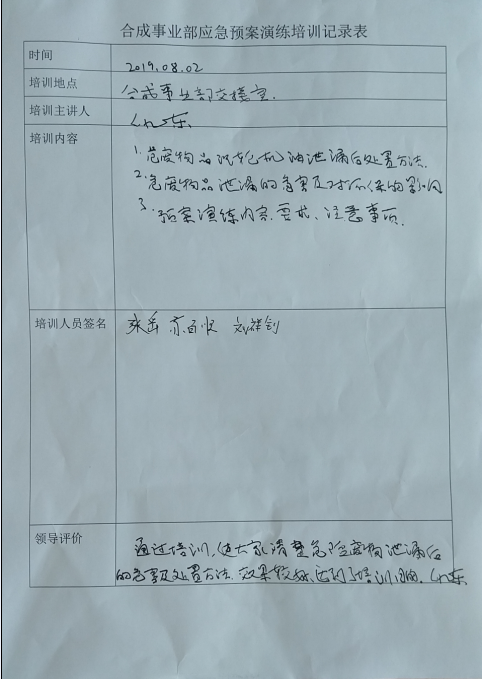 合成事业部应急预案演练培训记录表
时间
2019.08.02
培训地点
合成事业部交接室.
培训主讲人
培训内容
1. 危废物品 机油泄漏后处置方法.
2. 危废物品泄漏的危害及对环保的影响
3. 预案演练内容.要求、注意事项.
培训人员签名
张岳 刘祥剑
领导评价
通过培训,使大家清楚危险废物泄漏后
的危害及处置方法.效果较好,达到了培训目的.